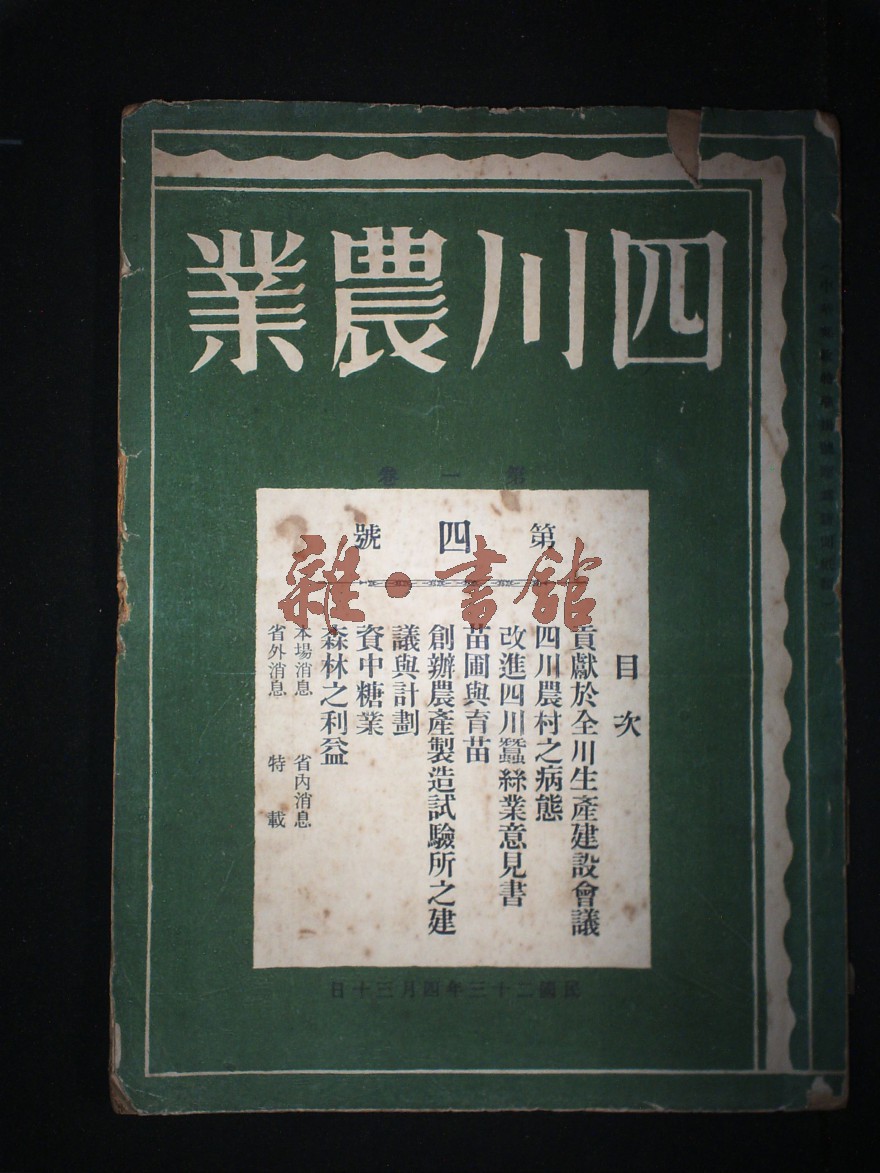 四川農業
第一卷
第四號
目次
貢獻於全川生產建設會議
四川農村之病態
改進四川蠶絲業意見書
苗圃與育苗
創辦農產製造試驗所之建
議與計劃
資中糖業
森林之利益
本場消息 省內消息
省外消息 特載
民國二十三年四月三十日
雜·書館